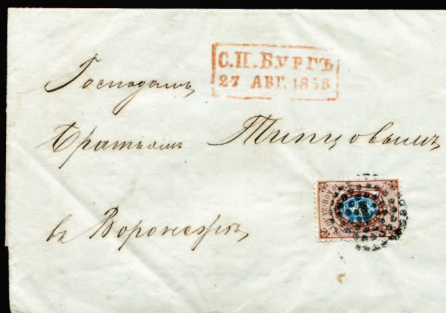 С.П.БУРГЪ
27 АВГ. 1858
Господамъ,
Братьямъ Типцовымъ,
въ Воронежѣ,